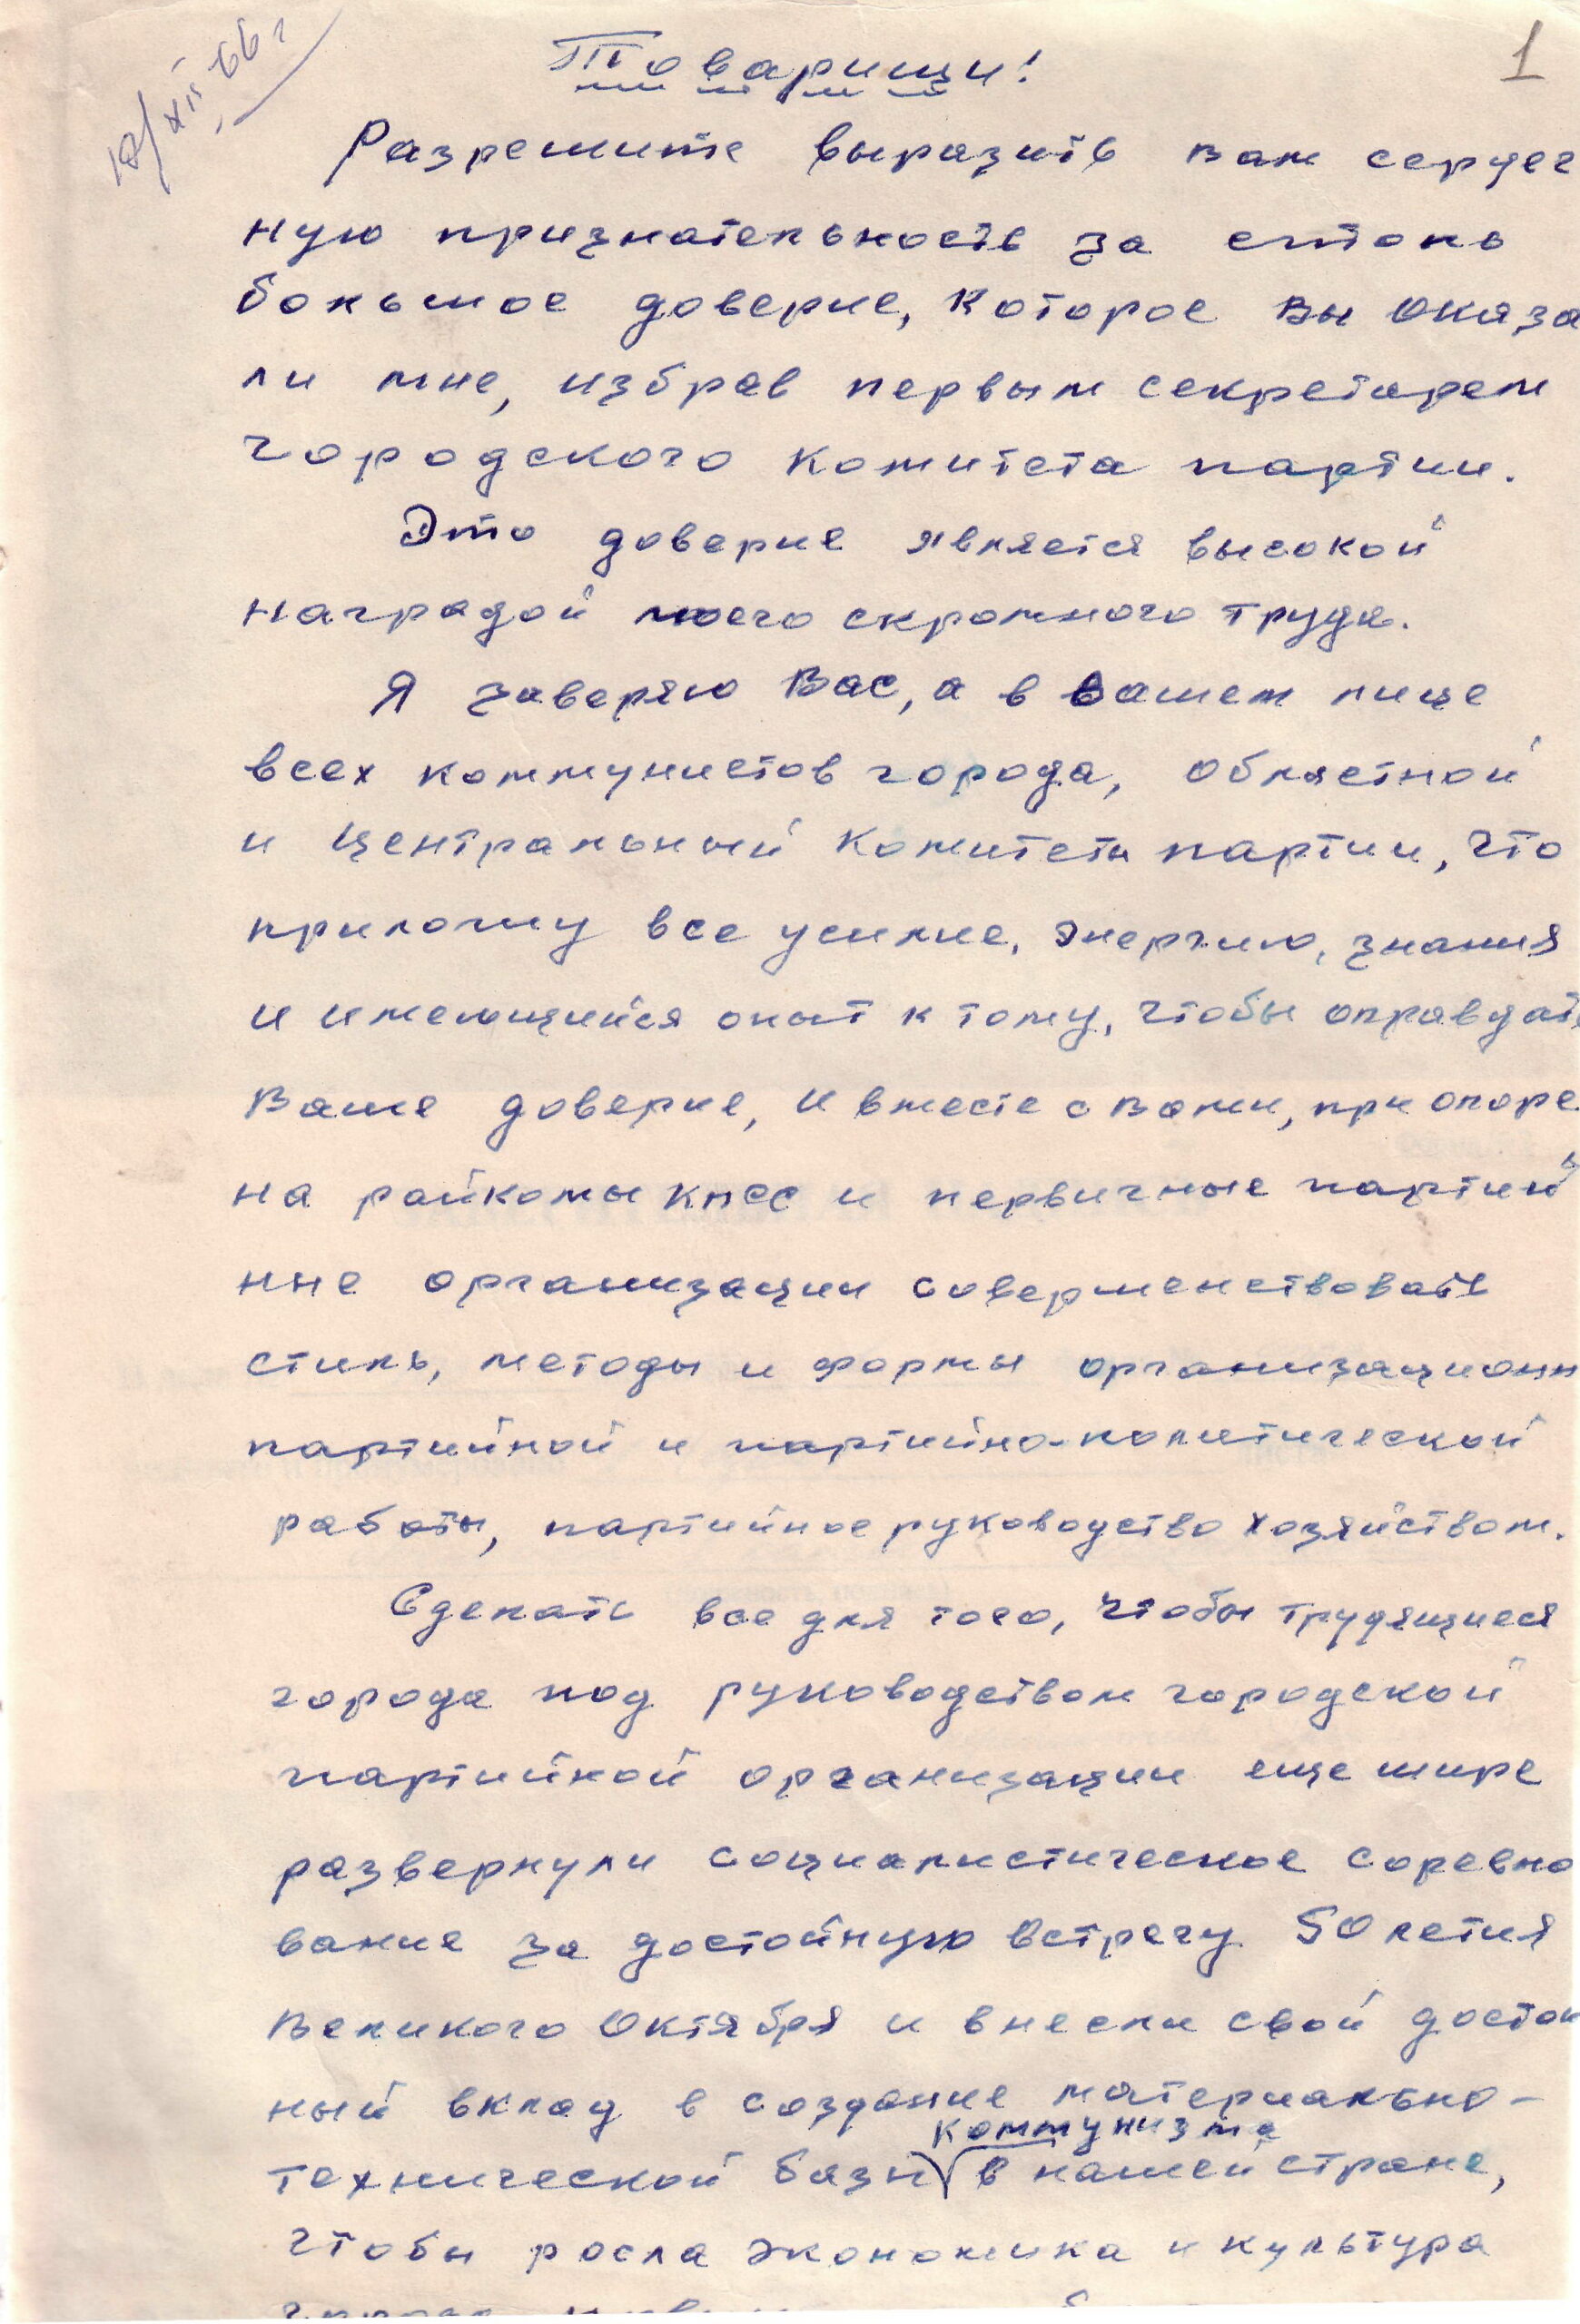 12/XII-66 г
1
Товарищи!
Разрешите выразить вам сердеч
ную признательность за столь
большое доверие, которое Вы оказа
ли мне, избрав первым секретарем
городского комитета партии.
Это доверие является высокой
наградой моего скромного труда.
Я заверяю Вас, а в Вашем лице
всех коммунистов города, областной
и Центральный Комитеты партии, что
приложу все усилие, энергию, знания
и имеющийся опыт к тому, чтобы оправдать
Ваше доверие, и вместе с Вами, при опоре
на райкомы КПСС и первичные партий
ные организации совершенствовать
стиль, методы и формы организационн
партийной и партийно-политической
работы, партийное руководство хозяйством.
Сделать все для того, чтобы трудящиеся
города под руководством городской
партийной организации еще шире
развернули социалистическое соревно
вание за достойную встречу 50 летия
Великого Октября и внесли свой достой
ный вклад в создание материально-
коммунизма
технической базы в нашей стране,
чтобы росла экономика и культура